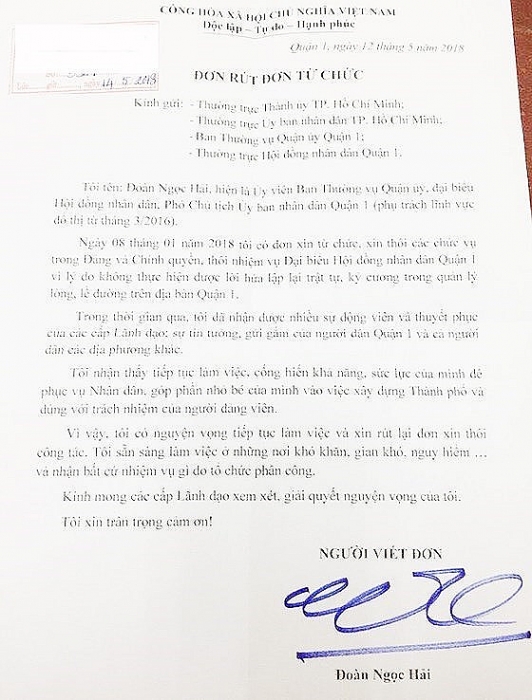 CỘNG HÒA XÃ HỘI CHỦ NGHĨA VIỆT NAM
Độc lập – Tự do – Hạnh phúc
Quận 1, ngày 12 tháng 5 năm 2018
14.5.2018
ĐƠN RÚT ĐƠN TỪ CHỨC
Kính gửi: - Thường trực Thành ủy TP. Hồ Chí Minh;
- Thường trực Ủy ban nhân dân TP. Hồ Chí Minh;
- Ban Thường vụ Quận ủy Quận 1;
- Thường trực Hội đồng nhân dân Quận 1.
Tôi tên: Đoàn Ngọc Hải, hiện là Ủy viên Ban Thường vụ Quận ủy, đại biểu
Hội đồng nhân dân, Phó Chủ tịch Ủy ban nhân dân Quận 1 (phụ trách lĩnh vực
đô thị từ tháng 3/2016).
Ngày 08 tháng 01 năm 2018 tôi có đơn xin từ chức, xin thôi các chức vụ
trong Đảng và Chính quyền, thôi nhiệm vụ Đại biểu Hội đồng nhân dân Quận 1
vì lý do không thực hiện được lời hứa lập lại trật tự, kỷ cương trong quản lý
lòng, lề đường trên địa bàn Quận 1.
Trong thời gian qua, tôi đã nhận được nhiều sự động viên và thuyết phục
của các cấp Lãnh đạo; sự tin tưởng, gửi gắm của người dân Quận 1 và cả người
dân các địa phương khác.
Tôi nhận thấy tiếp tục làm việc, cống hiến khả năng, sức lực của mình để
phục vụ Nhân dân, góp phần nhỏ bé của mình vào việc xây dựng Thành phố và
đúng với trách nhiệm của người đảng viên.
Vì vậy, tôi có nguyện vọng tiếp tục làm việc và xin rút lại đơn xin thôi
công tác. Tôi sẵn sàng làm việc ở những nơi khó khăn, gian khó, nguy hiểm …
và nhận bất cứ nhiệm vụ gì do tổ chức phân công.
Kính mong các cấp Lãnh đạo xem xét, giải quyết nguyện vọng của tôi.
Tôi xin trân trọng cảm ơn!
NGƯỜI VIẾT ĐƠN
Đoàn Ngọc Hải